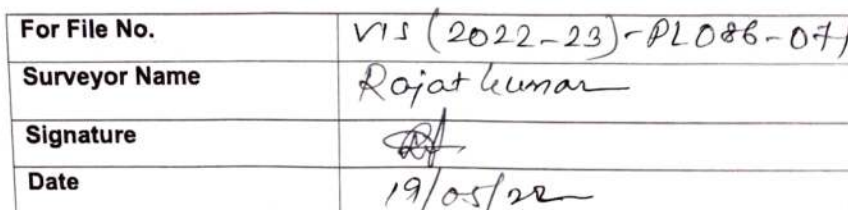 For File No. VIS (2022-23)-PL086-07
Surveyor Name Rajat Kumar
Signature
Date 19/05/22